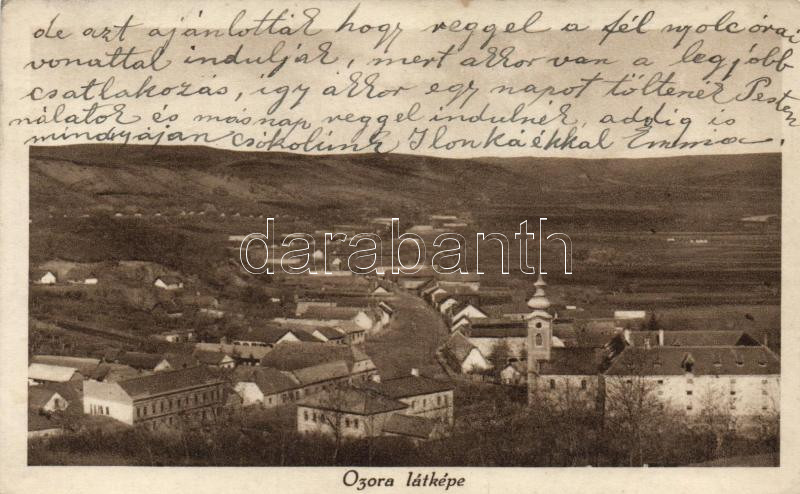 de azt ajánlották hogy reggel a fél nyolcórai
vonattal induljak, mert akkor van a legjobb
csatlakozás, így akkor egy napot töltenék Pesten
nálatok és másnap reggel indulnék, addig is
mindnyáján csókolunk Ilonkáékkal Emma
darabanth
Ozora látképe